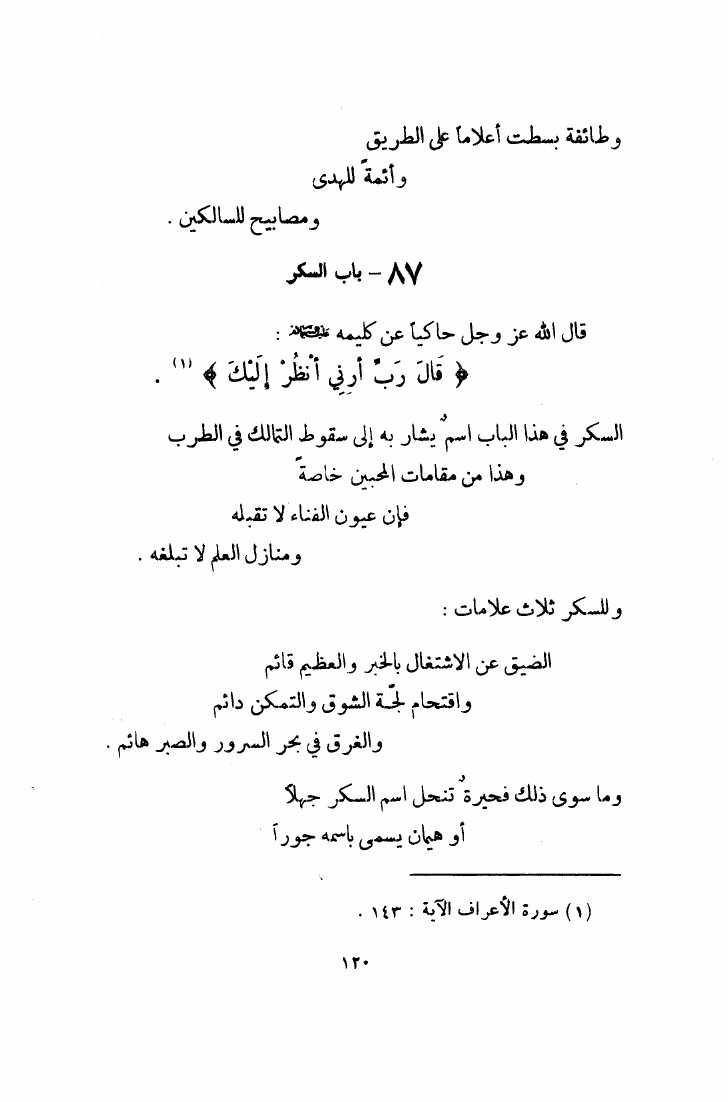 وطائفة بسطت أعلاماً على الطريق
وأئمةً للهدى
ومصابيح للسالكين .
٨٧ – باب السكر
قال الله عز وجل حاكياً عن كليمه عليه السلام :
﴿ قَالَ رَبِّ أَرِنِي أَنْظُرْ إِلَيْكَ ﴾ (١) .
السكر في هذا الباب اسمٌ يشار به إلى سقوط التمالك في الطرب
وهذا من مقامات المحبين خاصةً
فإن عيون الفناء لا تقبله
ومنازل العلم لا تبلغه .
وللسكر ثلاث علامات :
الضيق عن الاشتغال بالخبر والعظيم قائم
واقتحام لجّة الشوق والتمكن دائم
والغرق في بحر السرور والصبر هائم .
وما سوى ذلك فحيرةٌ تنحل اسم السكر جهلاً
أو هيمان يسمى باسمه جوراً
(١) سورة الأعراف الآية : ١٤٣ .
١٢٠